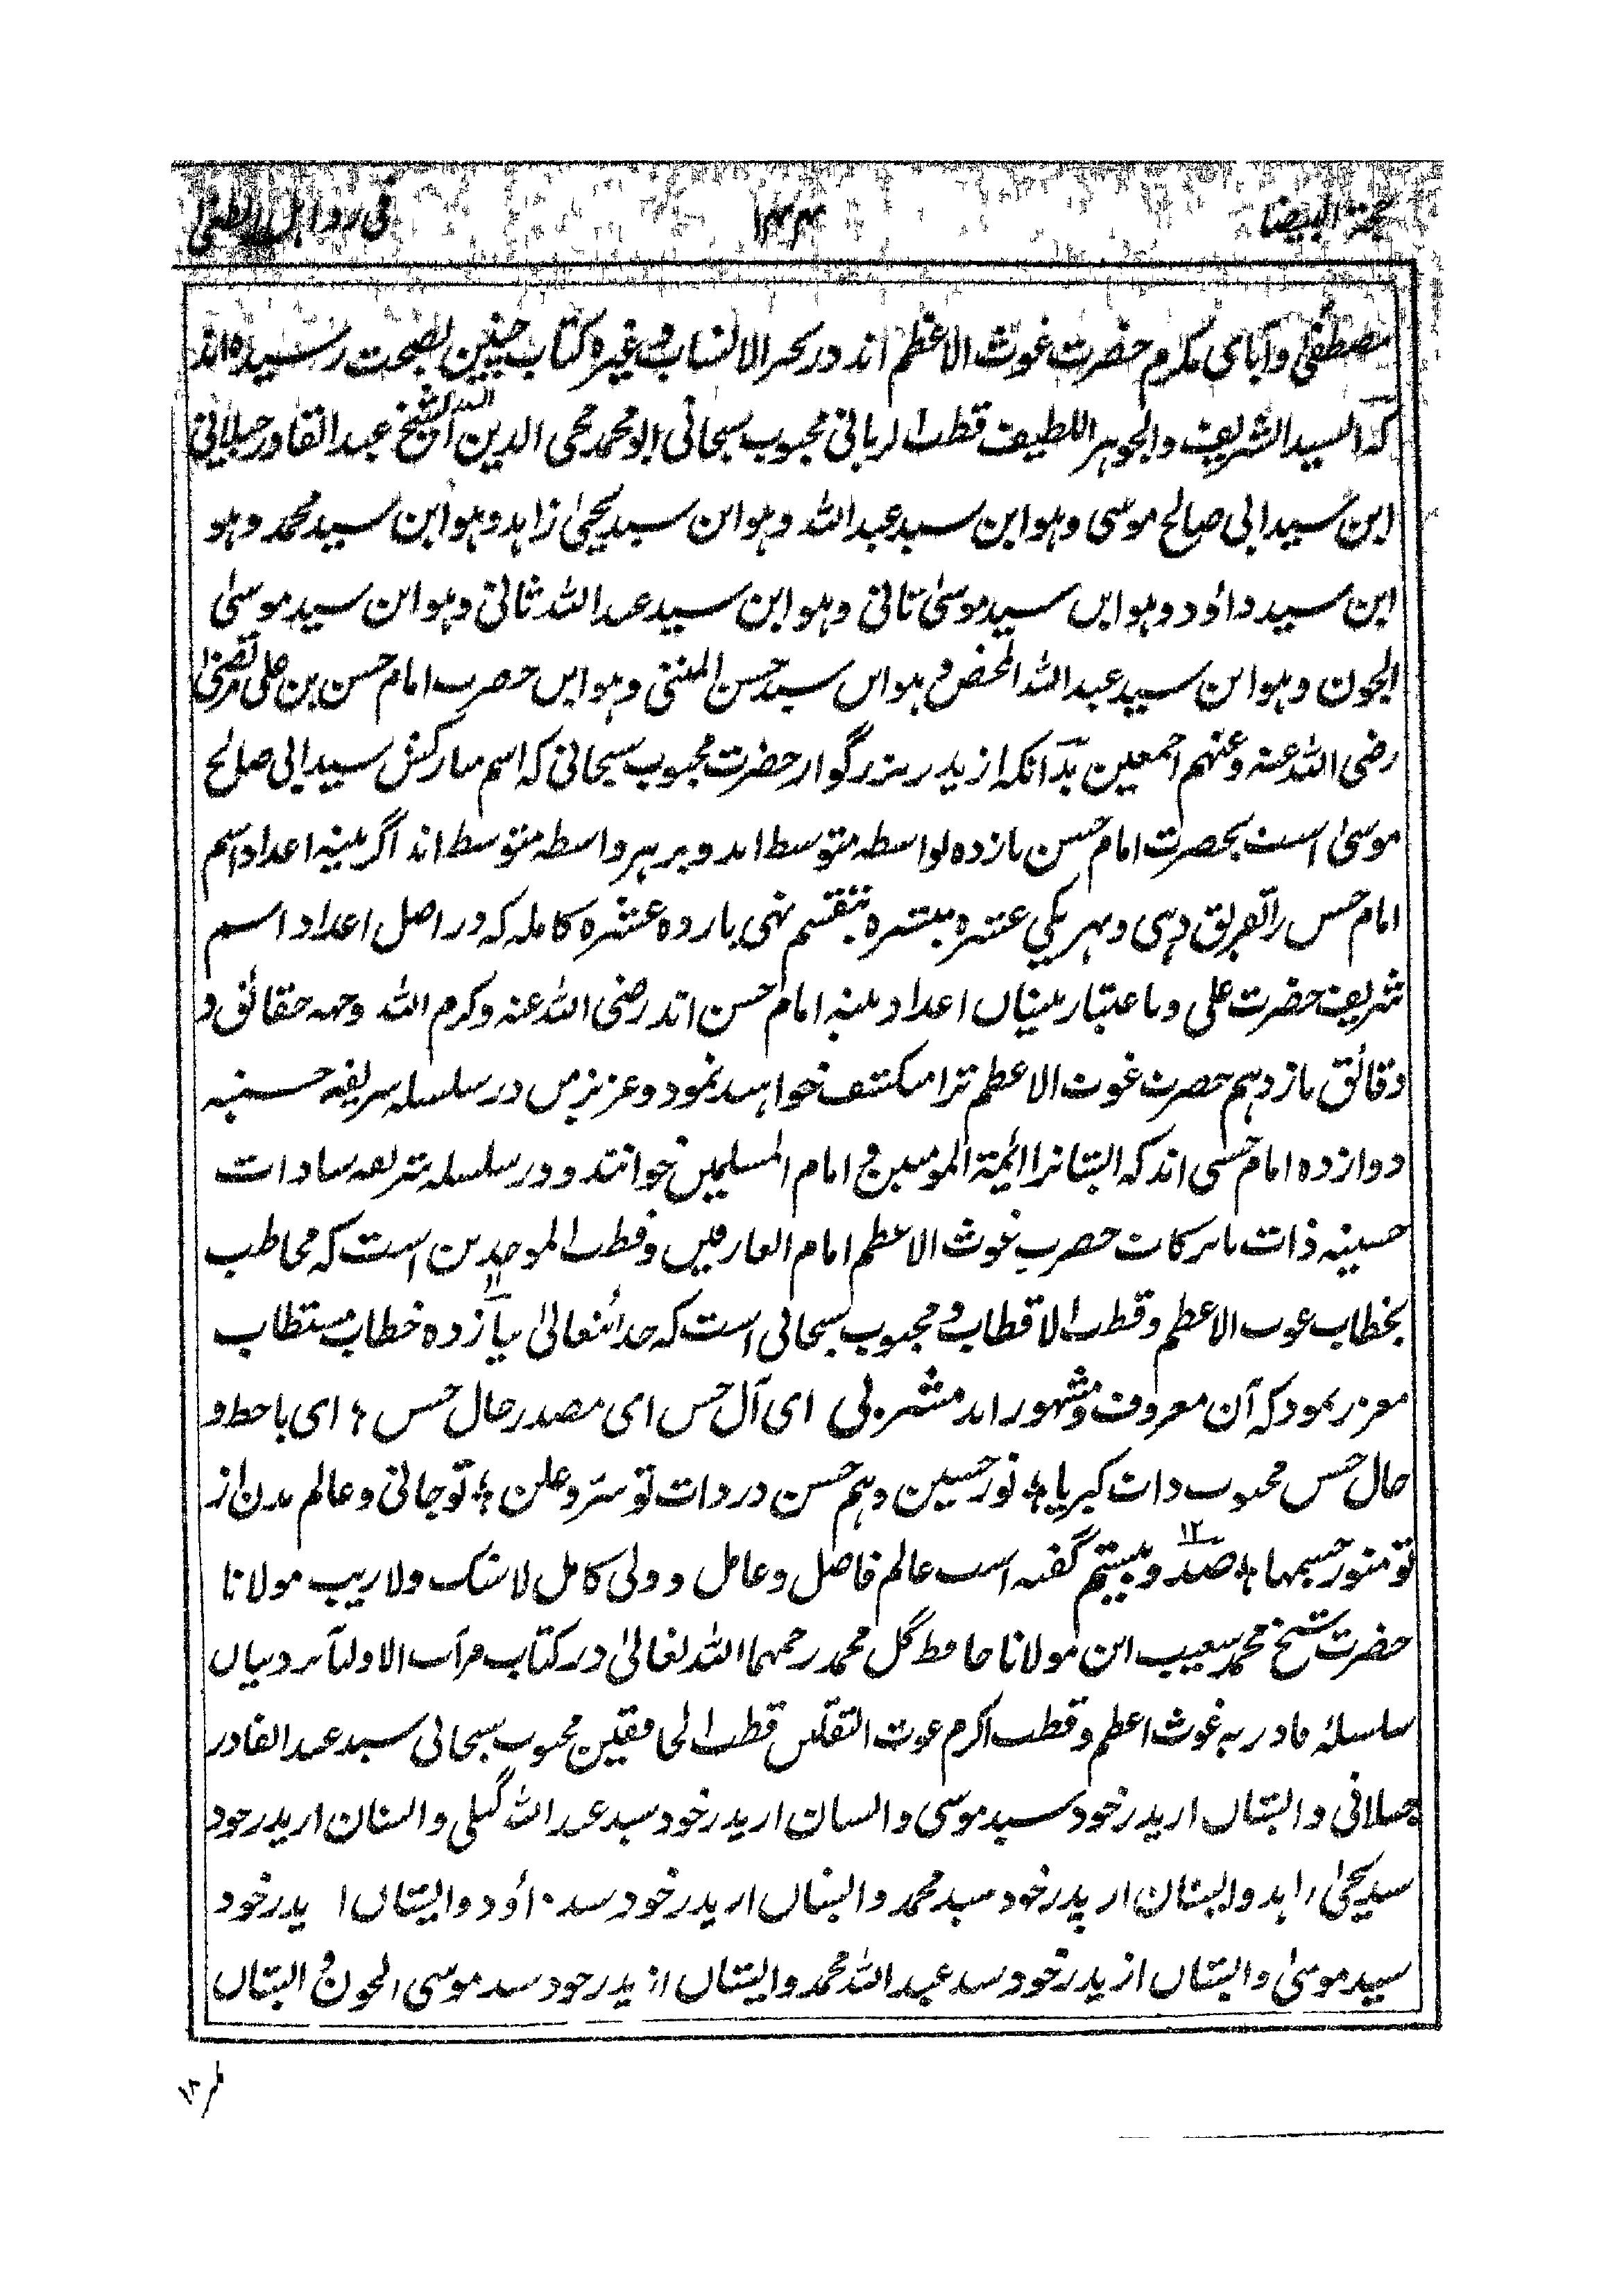 حجة البیضا ۱۴۴ فی رد اهل الطغی
مصطفی و آبای مکرم حضرت غوث الاعظم اند در بحر الانساب و غیره کتاب چنین بصحت رسیده اند
که السید الشریف و الجوهر اللطیف قطب الربانی محبوب سبحانی ابو محمد محی الدین السید الشیخ عبد القادر جیلانی
ابن سید ابی صالح موسی و هو ابن سید عبد الله و هو ابن سید یحیی زاهد و هو ابن سید محمد و هو
ابن سید داؤد و هو ابن سید موسی ثانی و هو ابن سید عبد الله ثانی و هو ابن سید موسی
الجون و هو ابن سید عبد الله المحض و هو ابن سید حسن المثنی و هو ابن حضرت امام حسن بن علی مرتضی
رضی الله عنه و عنهم اجمعین بدآنکه از پدر بزرگوار حضرت محبوب سبحانی که اسم مبارکش سید ابی صالح
موسی است بحضرت امام حسن یازده بواسطه متوسط اند و بر هر واسطه متوسط اند اگر بینه اعداد اسم
امام حسن را تفریق دهی و بهر یکی عشره مبشره منقسم نهی یازده عشره کامله که در اصل اعداد اسم
شریف حضرت علی و باعتبار بینان اعداد بینه امام حسن اند رضی الله عنه و کرم الله وجهه حقائق و
دقائق یازدهم حضرت غوث الاعظم ترا منکشف خواهند نمود و عزیز من در سلسله شریفه حسنیه
دوازده امام حسنی اند که ایشانرا ائمة المومنین و امام المسلمین خوانند و در سلسله شریفه سادات
حسینیه ذات بابرکات حضرت غوث الاعظم امام العارفین و قطب الموحدین است که مخاطب
بخطاب غوث الاعظم و قطب الاقطاب و محبوب سبحانی است که خدائتعالی بیازده ۱۱ خطاب مستطاب
معزز نمود که آن معروف و مشهور اند مشربی ای آل حسن ای مصدر حال حسن ؛ ای با خط و
خال حسن محبوب ذات کبریا ؛ نور حسین و هم حسن در ذات تو سر و علن ؛ تو جانی و عالم بدن از
تو منور جسمها ؛ صد و بیستم ۱۲ گفته است عالم فاضل و عامل و ولی کامل لاشک و لاریب مولانا
حضرت شیخ محمد شعیب ابن مولانا حافظ گل محمد رحمهما الله تعالی در کتاب مرآت الاولیآء در بیان
سلسلۀ قادریه غوث اعظم و قطب اکرم غوث الثقلین قطب الخافقین محبوب سبحانی سید عبد القادر
جیلانی و ایشان از پدر خود سید موسی و ایشان از پدر خود سید عبد الله گیلی و ایشان از پدر خود
سید یحیی زاهد و ایشان از پدر خود سید محمد و ایشان از پدر خود سید داؤد و ایشان از پدر خود
سید موسی و ایشان از پدر خود سید عبد الله محمد و ایشان از پدر خود سید موسی الجون و ایشان